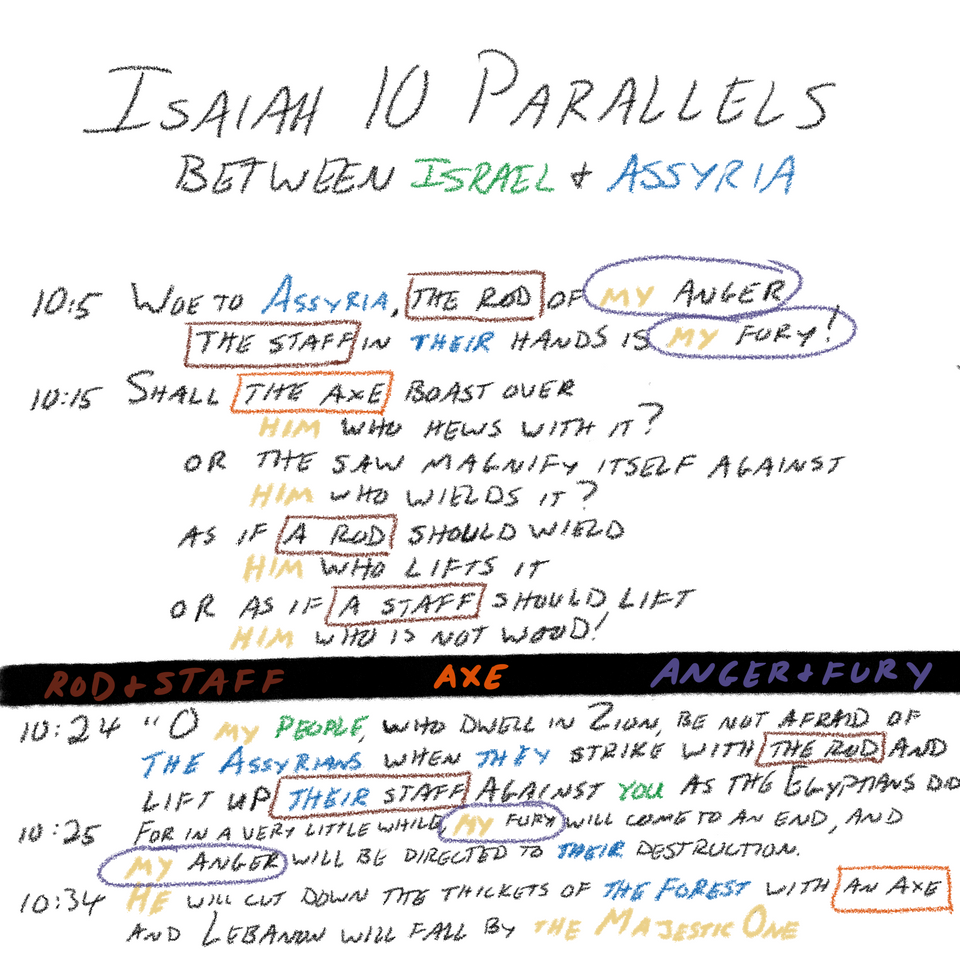 ISAIAH 10 PARALLELS
BETWEEN ISRAEL & ASSYRIA
10:5 WOE TO ASSYRIA, THE ROD OF MY ANGER
THE STAFF IN THEIR HANDS IS MY FURY!
10:15 SHALL THE AXE BOAST OVER
HIM WHO HEWS WITH IT?
OR THE SAW MAGNIFY ITSELF AGAINST
HIM WHO WIELDS IT?
AS IF A ROD SHOULD WIELD
HIM WHO LIFTS IT
OR AS IF A STAFF SHOULD LIFT
HIM WHO IS NOT WOOD!
ROD & STAFF AXE ANGER & FURY
10:24 "O MY PEOPLE, WHO DWELL IN ZION, BE NOT AFRAID OF
THE ASSYRIANS WHEN THEY STRIKE WITH THE ROD AND
LIFT UP THEIR STAFF AGAINST YOU AS THE EGYPTIANS DID
10:25 FOR IN A VERY LITTLE WHILE, MY FURY WILL COME TO AN END, AND
MY ANGER WILL BE DIRECTED TO THEIR DESTRUCTION.
10:34 HE WILL CUT DOWN THE THICKETS OF THE FOREST WITH AN AXE
AND LEBANON WILL FALL BY THE MAJESTIC ONE